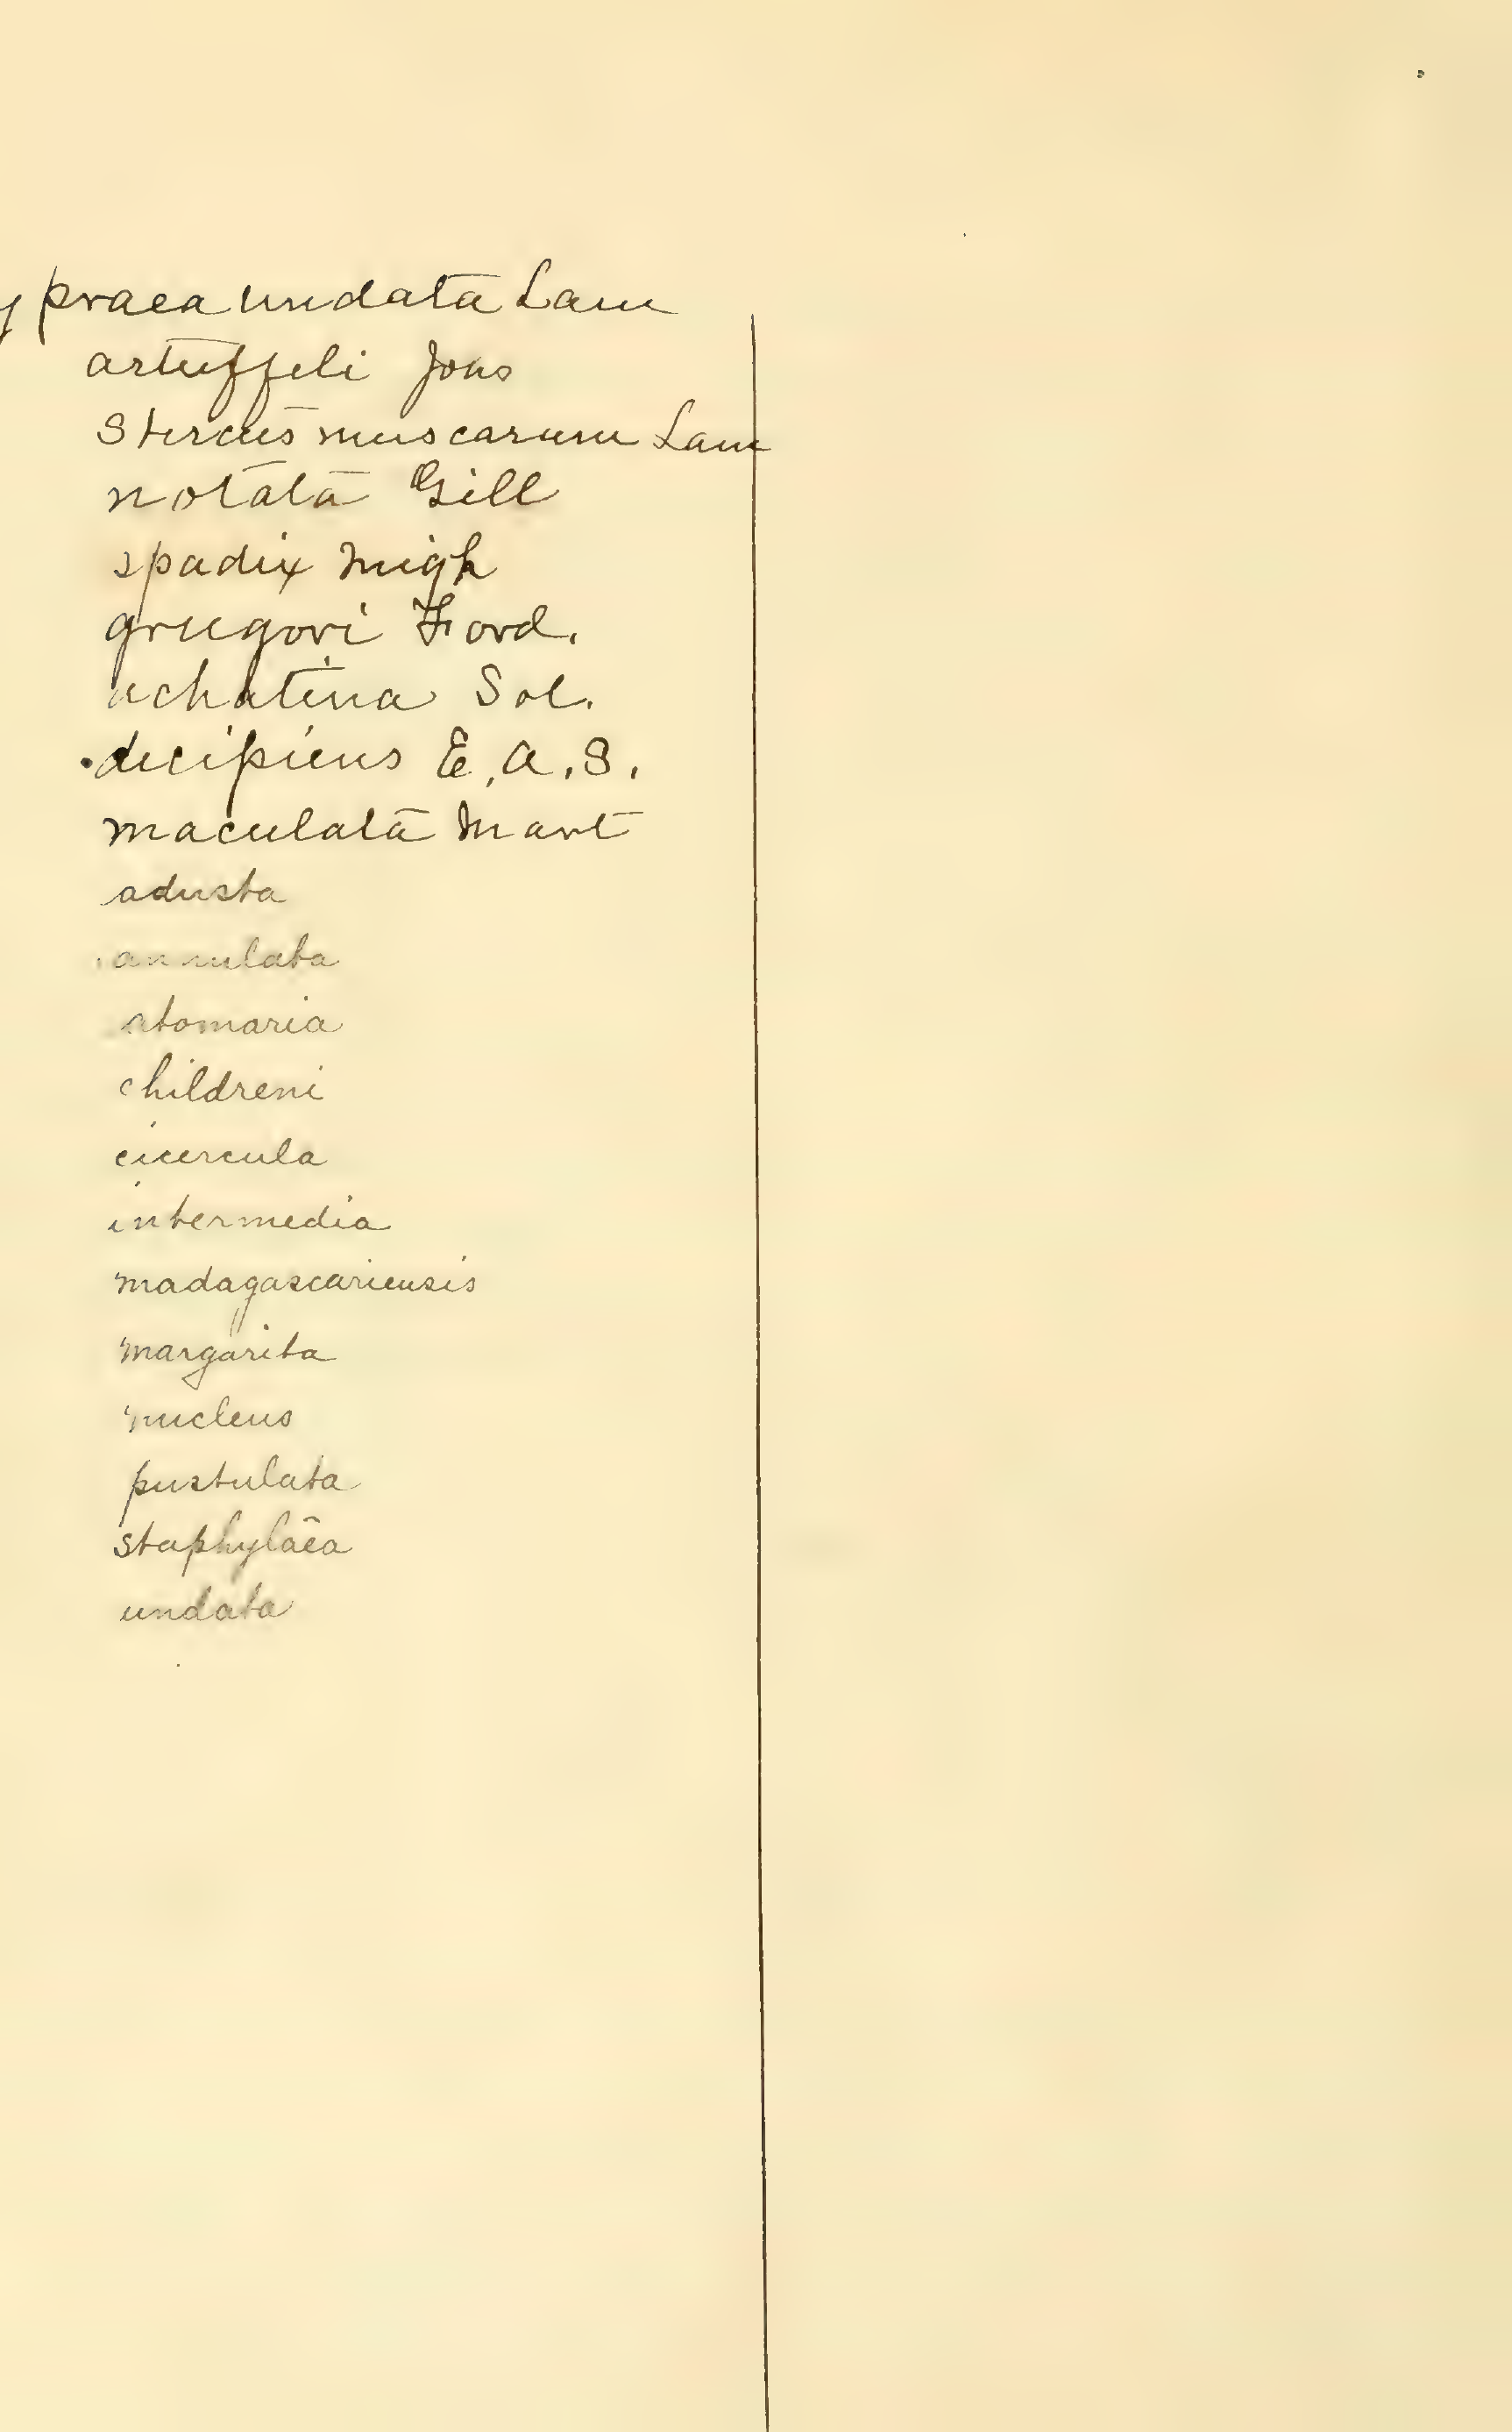 ypraea undata Lam
artuffeli Jous
Stercus muscarum Lam
notata Gill
spadix Migh
greegori Ford.
achatina Sol.
decipiens E.A.S.
maculata Mart
adusta
annulata
atomaria
childreni
cicercula
intermedia
madagascariensis
margarita
nucleus
pustulata
staphylaea
undata